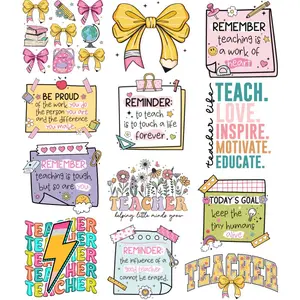 REMEMBER
teaching is
a work of
heart
BE PROUD
of the work you do
the person you are
and the difference
you make
REMINDER:
to teach
is to touch a life
forever
teacher life
TEACH.
LOVE.
INSPIRE.
MOTIVATE.
EDUCATE.
REMEMBER
teaching is tough
but so are you
TEACHER
helping little minds grow
TODAY'S GOAL
keep the
tiny humans
alive
TEACHER
TEACHER
TEACHER
TEACHER
TEACHER
REMINDER:
the influence of a
teacher
cannot be erased
TEACHER